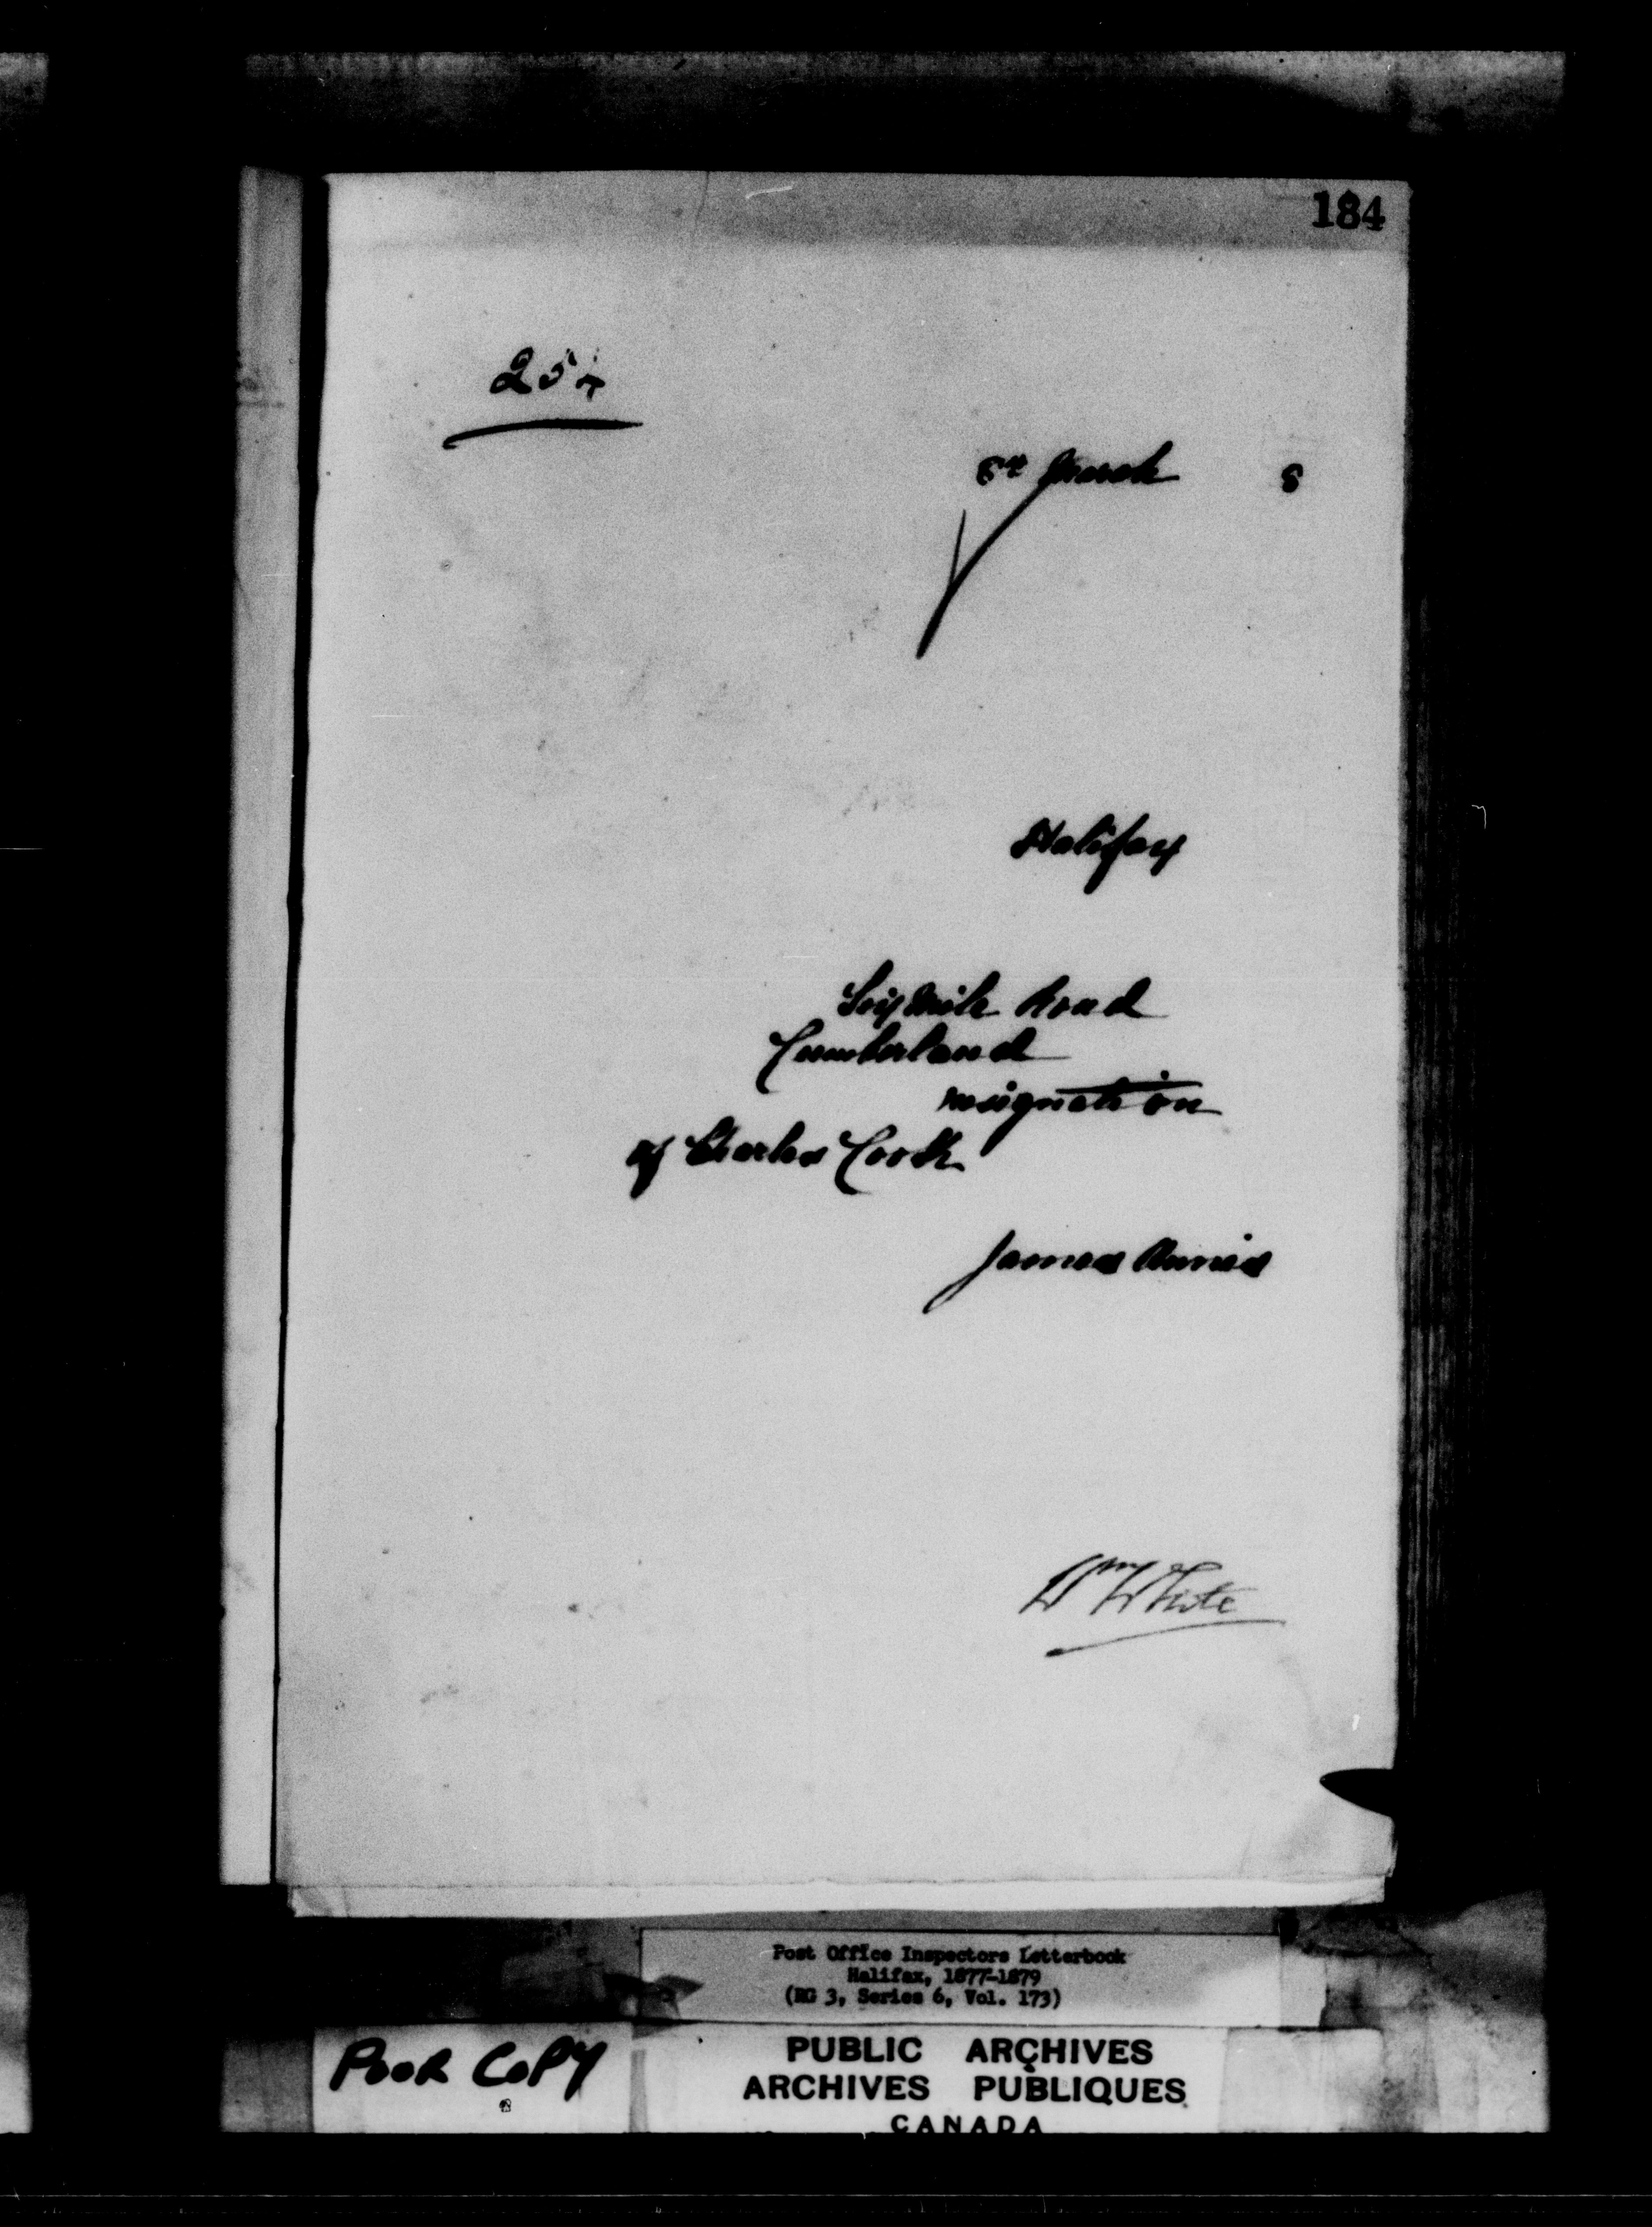 184
254
8th March 8
Halifax
Six Mile Road
Cumberland
resignation
of Charles Cook
James
Wm White
Post Office Inspectors Letterbook
Halifax, 1877-1879
(RG 3, Series 6, Vol. 173)
POOR COPY
PUBLIC ARCHIVES
ARCHIVES PUBLIQUES
CANADA